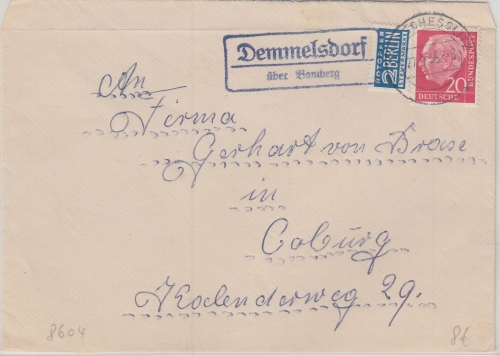 Demmelsdorf
über Bamberg
NOTOPFER
2 BERLIN
STEUERMARKE
20
DEUTSCHE
BUNDESPOST
An
Firma
Gerhart von Brase
in
Coburg
Kalenderweg 29.
8604
8€